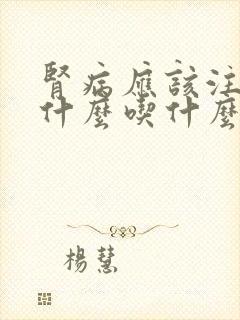 腎病應該注
什麼喫什麼
楊慧